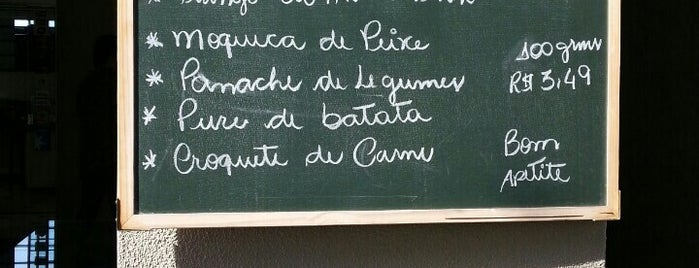 * Moquuca de Peixe
* Panache de Legumes
* Pure de batata
* Croquete de Carne
100grms
R$ 3,49
Bom
Apitite